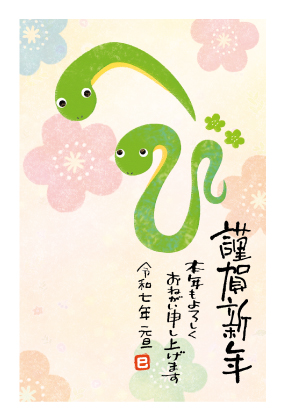 謹賀新年
本年もよろしく
おねがい申し上げます
令和七年 元旦
巳